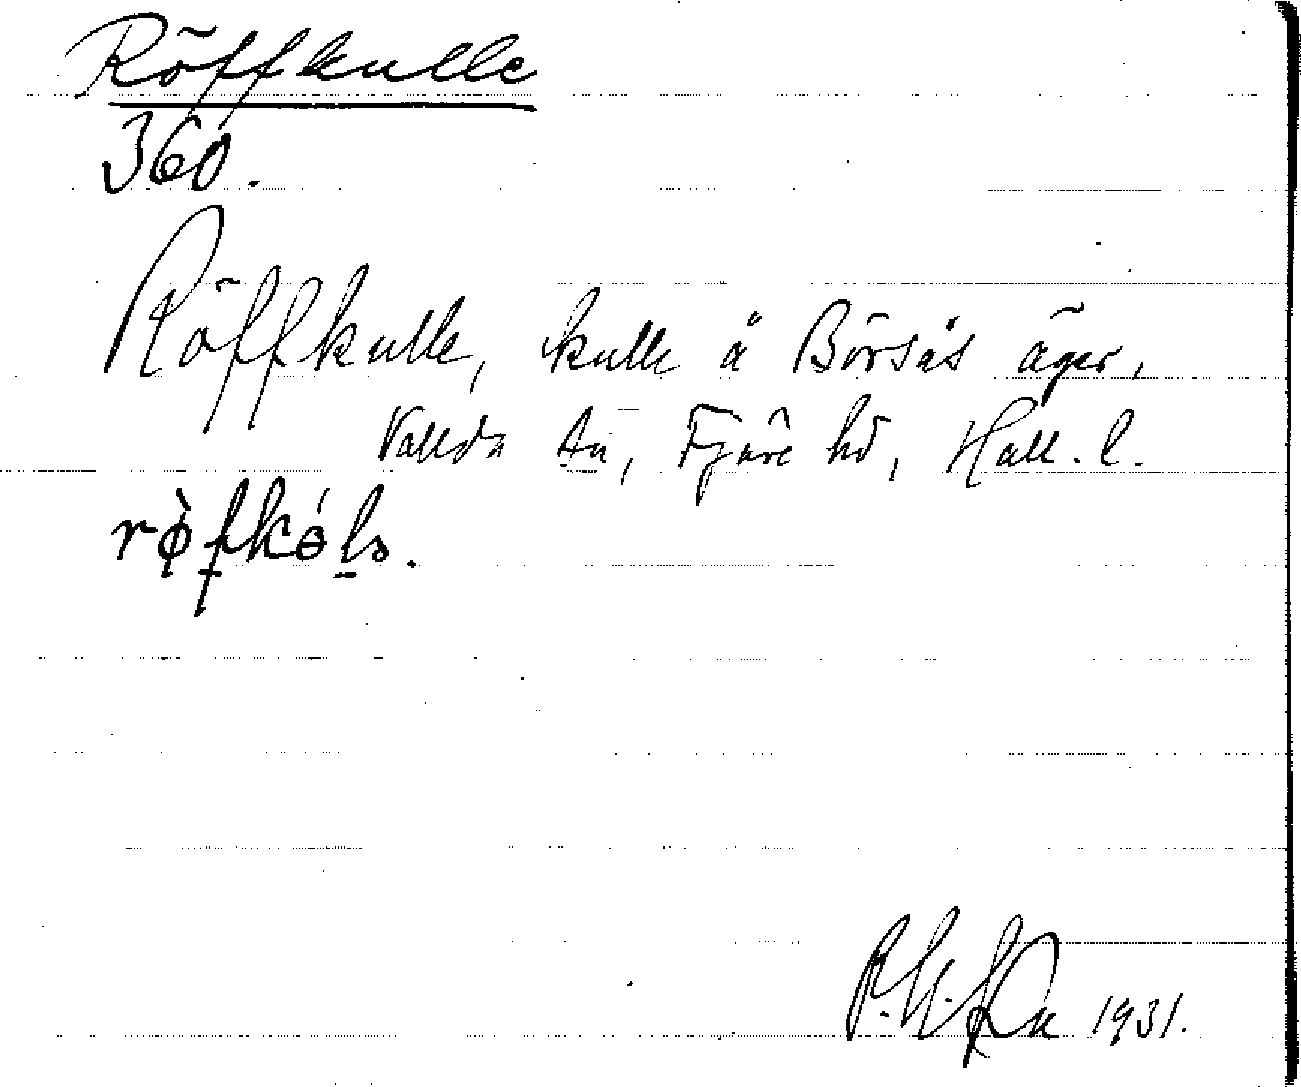 Röffkulle
360.
Röffkulle, kulle å Börsås äger,
Vallda sn, Fjäre hd, Hall. l.
1931.